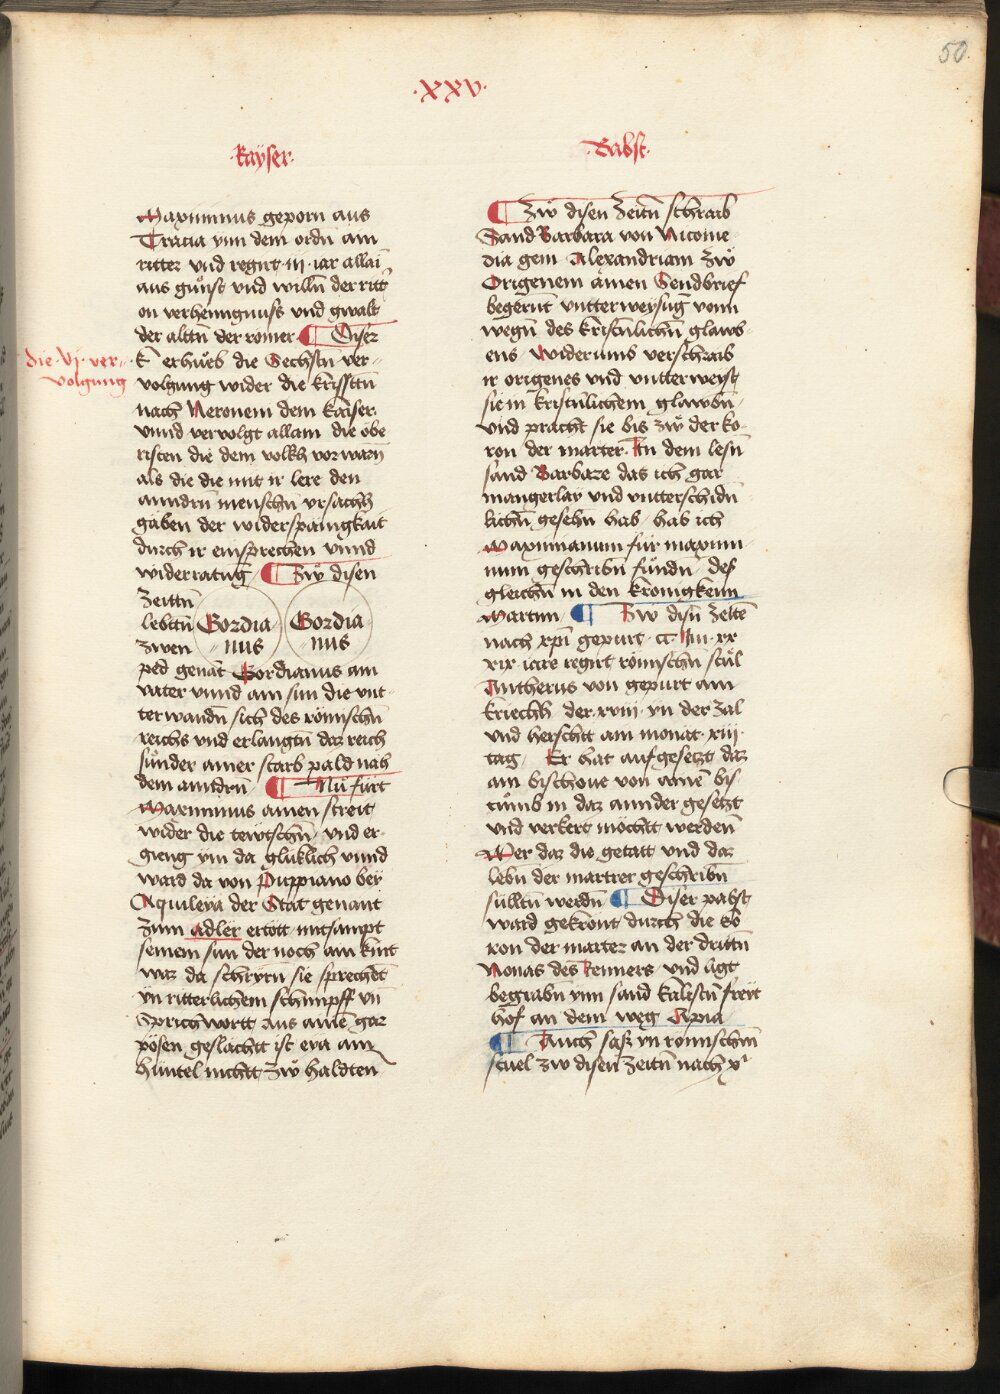 50.
·xxv·
·kayser·
Maximinus geporn aus
Tracia vnn dem ordn am
ritter vnd regirt ·iii· iar allai
aus gunst vnd willn der ritt
on verhenngnuss vnd gwalt
der alttn der romer ¶ Diser
die ·vi· ver-
volgung
k erhueb die Sechstn ver-
volgung wider die kristtn
nach Neronem dem kaiser
vnnd vervolgt allain die obe
risten die dem volkh vor warn
als die die mit ir lere den
anndrn menschn vrsachh
gaben der widerspänigkait
durch ir einsprechen vnnd
widerratug ¶ Zw disen
Zeittn
lebttn
zwen
Gordia-
nus
Gordia-
nus
ped genat Gordianus ain
vater vnnd ain sun die vnt-
terwandn sich des römischn
reichs vnd erlangtn daz reich
sunder ainer starb pald nah
dem anndrn ¶ Nu furt
Maximinus ainen streit
wider die tewtschn vnd er-
gieng ym da gluklich vnnd
ward da von Puppiano bey
Aquileya der Stat genant
zum adler ertött mitsampt
seinem sun der noch ain kint
waz da schryrn sie sprechet
yn ritterlichem schimpff vn
Sprichwortt aus aine gar
pösen geslachtt ist eya ain
huntel nichtt zw haldten
·Babst·
¶ Zw disen Zeitn schraib
Sand Barbara von Nicome-
dia gein Alexandriam zw
Origenem ainen Sendbrief
begernt vntterweysug vonn
wegn des kristnlichn glaws-
ens Widerumb verschraib
ir origenes vnd vntterweyst
sie in kristnlichem glawbn
vnd pracht sie bis zw der ko-
ron der marter. In dem lesn
sand Barbare das ich gar
mangerlay vnd vntterschidn-
lichn gesehn hab hab ich
Maximianum für maximi-
num geschribn fundn des
gleichn in den kronigkenn
Martini ¶ Zw disn Zeite
nach xpi gepurt ·cc· iin· xx
xix iare regirt römischn stul
Antherus von gepurt ain
kriechh der xviii yn der zal
vnd herschtt ain monat xiij
tag Er hat aufgesetzt daz
ain bischoue von aine bis
tumb in daz annder gesetzt
vnd verkert möchtt werden
Wer daz die getatt vnd daz
lebn der martrer geschribn
sulltn werdn ¶ Diser pabst
ward gekront durch die ko
ron der marter an der drittn
Nonas des Jenners vnd ligt
begrabn ynn sand kalistn freyt
hof an dem weg Apia
¶ Auch sass yn romischm
stuel zw disen Zeitn nach x